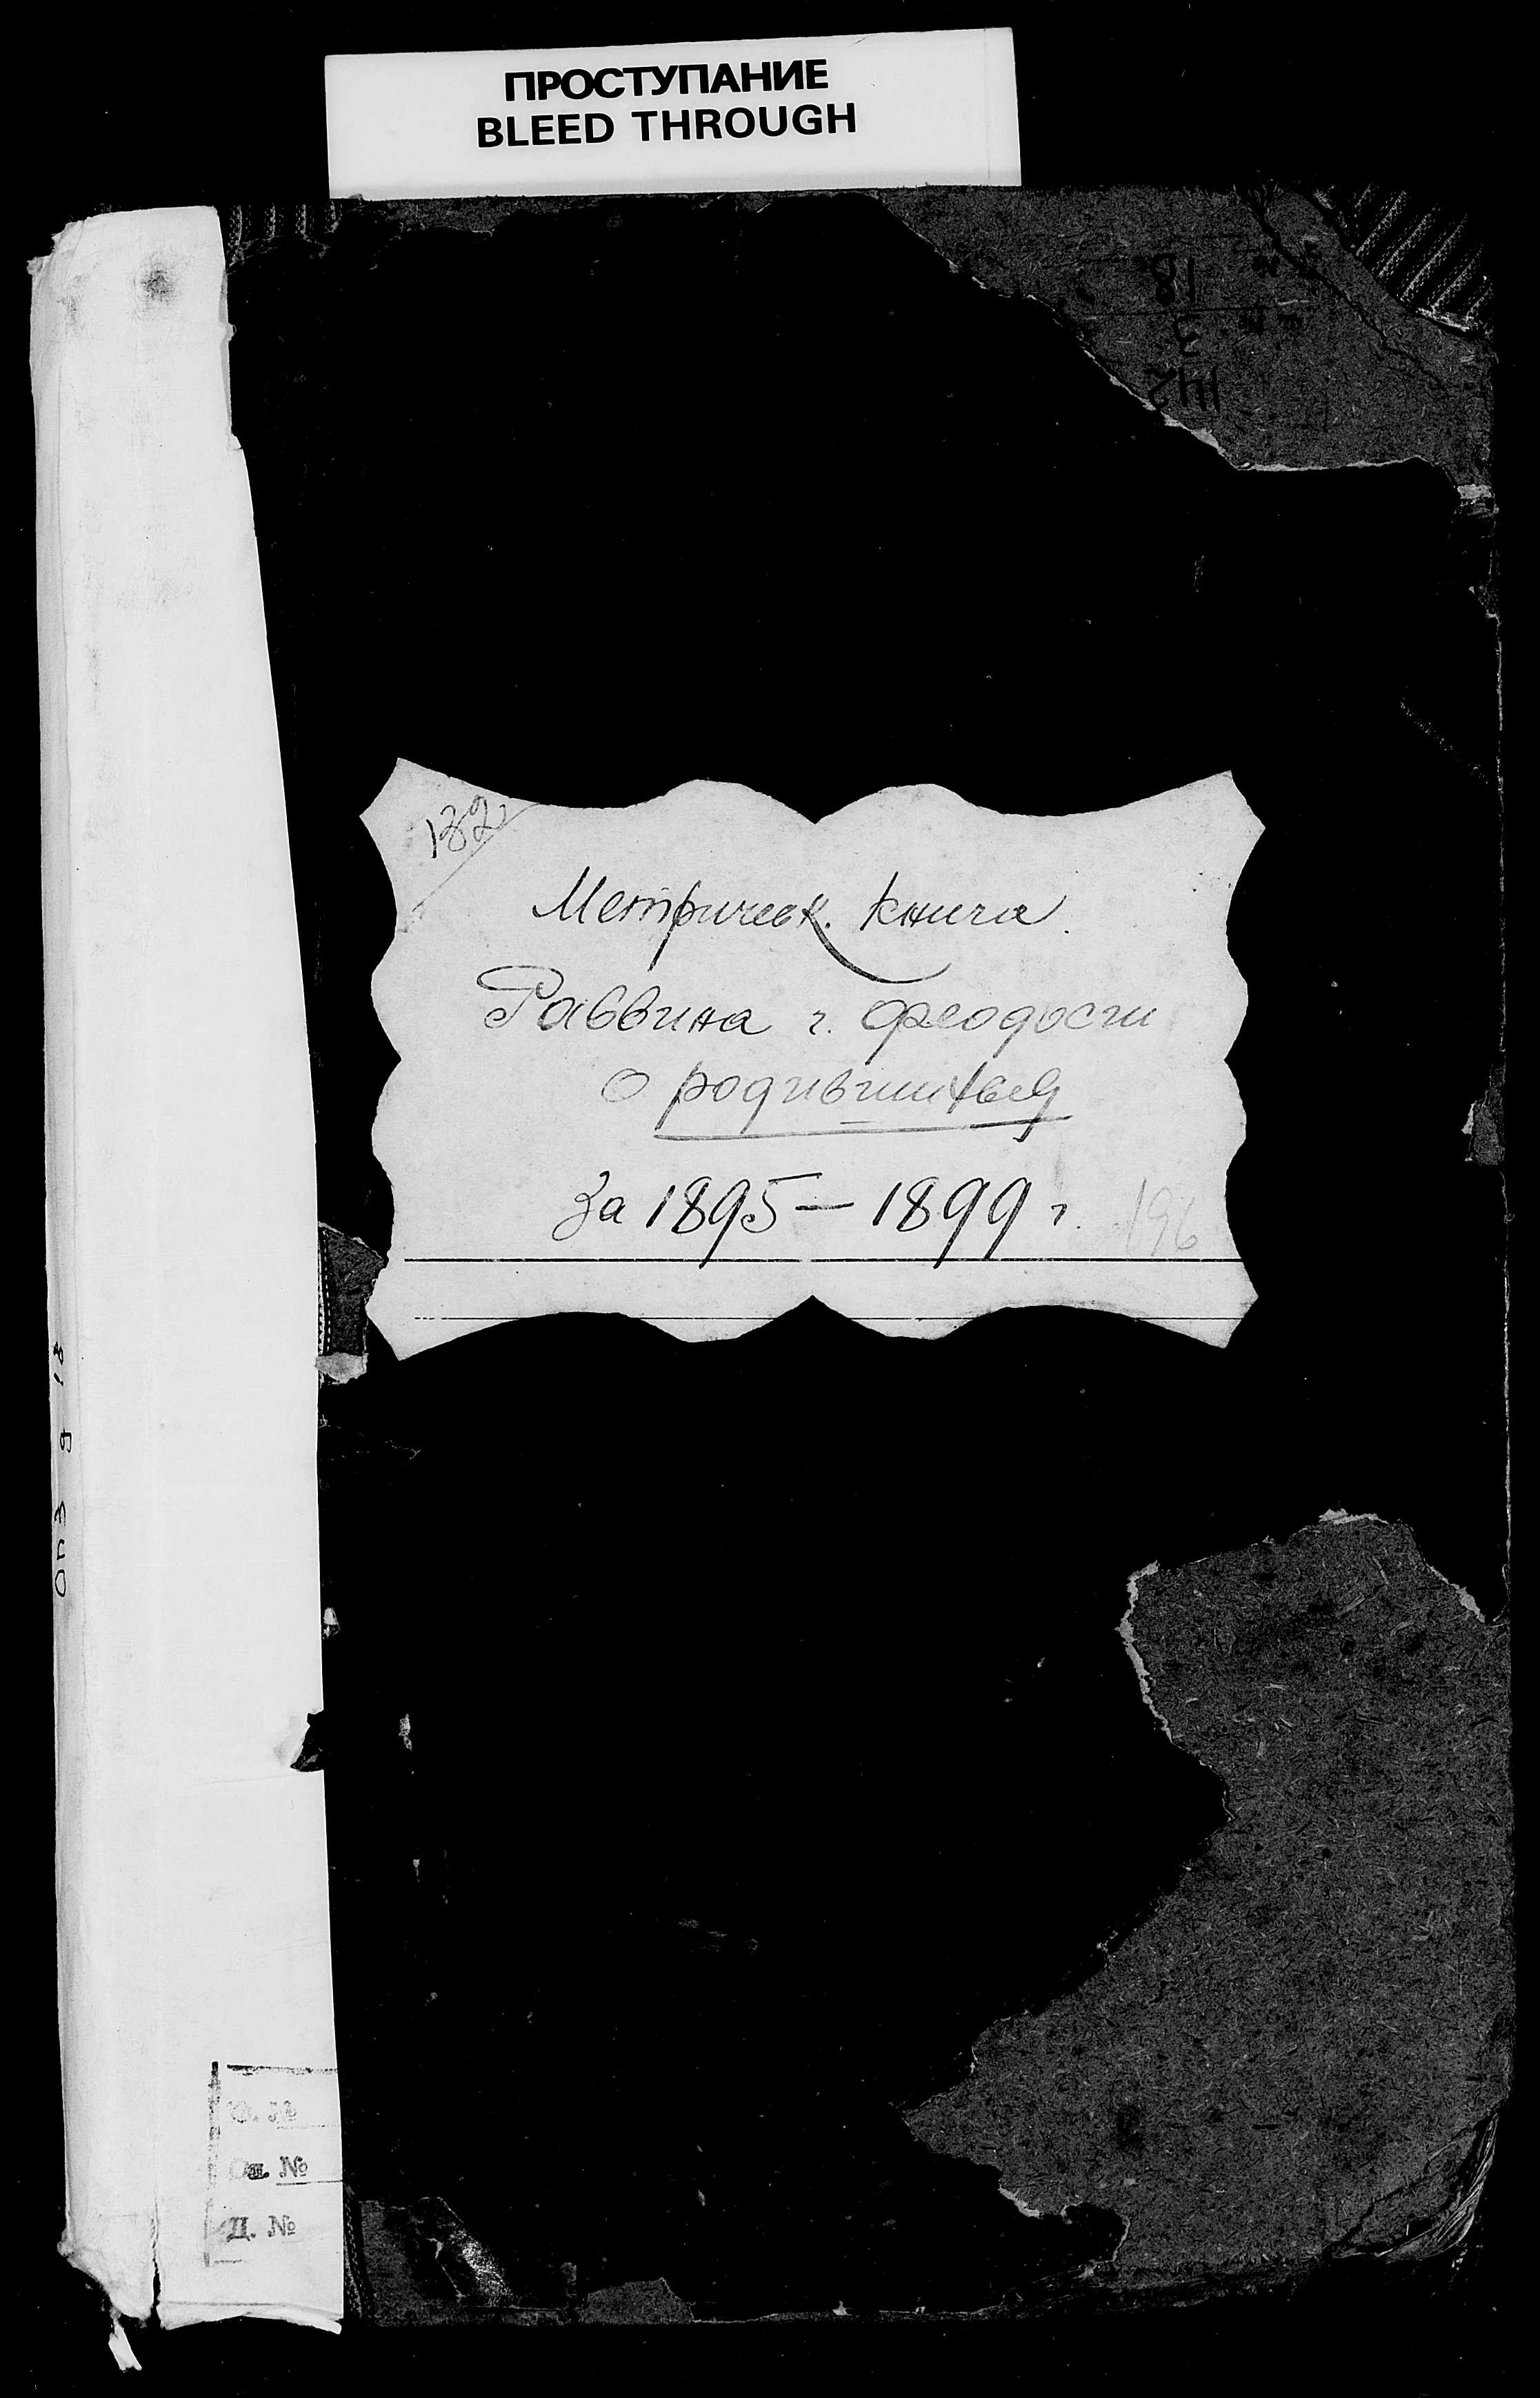 ПРОСТУПАНИЕ
BLEED THROUGH
18
3
142
132
Метрическ. книга.
Раввина г. Феодосии
о родившихся
за 1895 — 1899 г.
196
Оп 3 д 18
Оп. №
Д. №